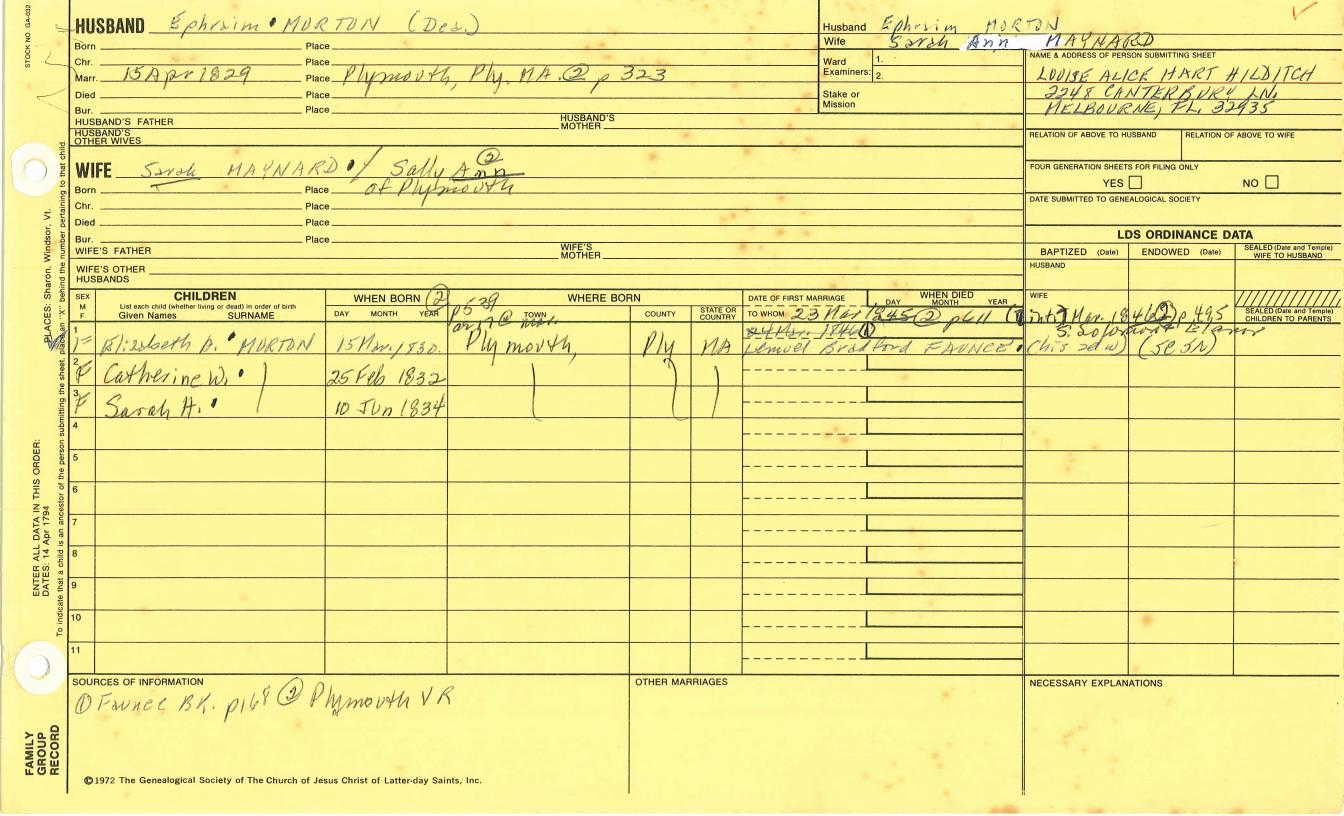 STOCK NO. GA-032
HUSBAND Ephraim MORTON (Dea.)
Born Place
Chr. Place
Marr. 15 Apr 1829 Place Plymouth, Ply. MA. ② p 323
Died Place
Bur. Place
HUSBAND'S FATHER HUSBAND'S MOTHER
HUSBAND'S OTHER WIVES
Husband Ephraim MORTON
Wife Sarah Ann MAYNARD
Ward Examiners: 1.
2.
Stake or Mission
NAME & ADDRESS OF PERSON SUBMITTING SHEET
LOUISE ALICE HART HILDITCH
2248 CANTERBURY LN.
MELBOURNE, FL. 32935
RELATION OF ABOVE TO HUSBAND RELATION OF ABOVE TO WIFE
FOUR GENERATION SHEETS FOR FILING ONLY
YES NO
DATE SUBMITTED TO GENEALOGICAL SOCIETY
WIFE Sarah MAYNARD / Sally Ann ②
of Plymouth
Born Place
Chr. Place
Died Place
Bur. Place
WIFE'S FATHER WIFE'S MOTHER
WIFE'S OTHER HUSBANDS
LDS ORDINANCE DATA
BAPTIZED (Date) ENDOWED (Date) SEALED (Date and Temple) WIFE TO HUSBAND
HUSBAND
WIFE
SEALED (Date and Temple) CHILDREN TO PARENTS
SEX M F
CHILDREN
List each child (whether living or dead) in order of birth
Given Names SURNAME
WHEN BORN ②
DAY MONTH YEAR
p 539
WHERE BORN
TOWN COUNTY STATE OR COUNTRY
DATE OF FIRST MARRIAGE
TO WHOM
WHEN DIED
DAY MONTH YEAR
23 Mar 1845 ② p 611
24 Mar. 1846 ①
Int. 7 Mar. 1846 ② p. 495
S. Solomon & Eleanor
1 F Elizabeth A. MORTON 15 Mar. 1830. Plymouth, Ply MA Lemuel Bradford FAUNCE (his 2d w)
2 F Catherine W. 25 Feb 1832
3 F Sarah H. 10 Jun 1834
4
5
6
7
8
9
10
11
SOURCES OF INFORMATION
① Faunce BK. p168 ② Plymouth VR
OTHER MARRIAGES
NECESSARY EXPLANATIONS
©1972 The Genealogical Society of The Church of Jesus Christ of Latter-day Saints, Inc.
FAMILY GROUP RECORD
ENTER ALL DATA IN THIS ORDER:
DATES: 14 Apr 1794
PLACES: Sharon, Windsor, Vt.
To indicate that a child is an ancestor of the person submitting the sheet, place an "X" behind the number pertaining to that child.